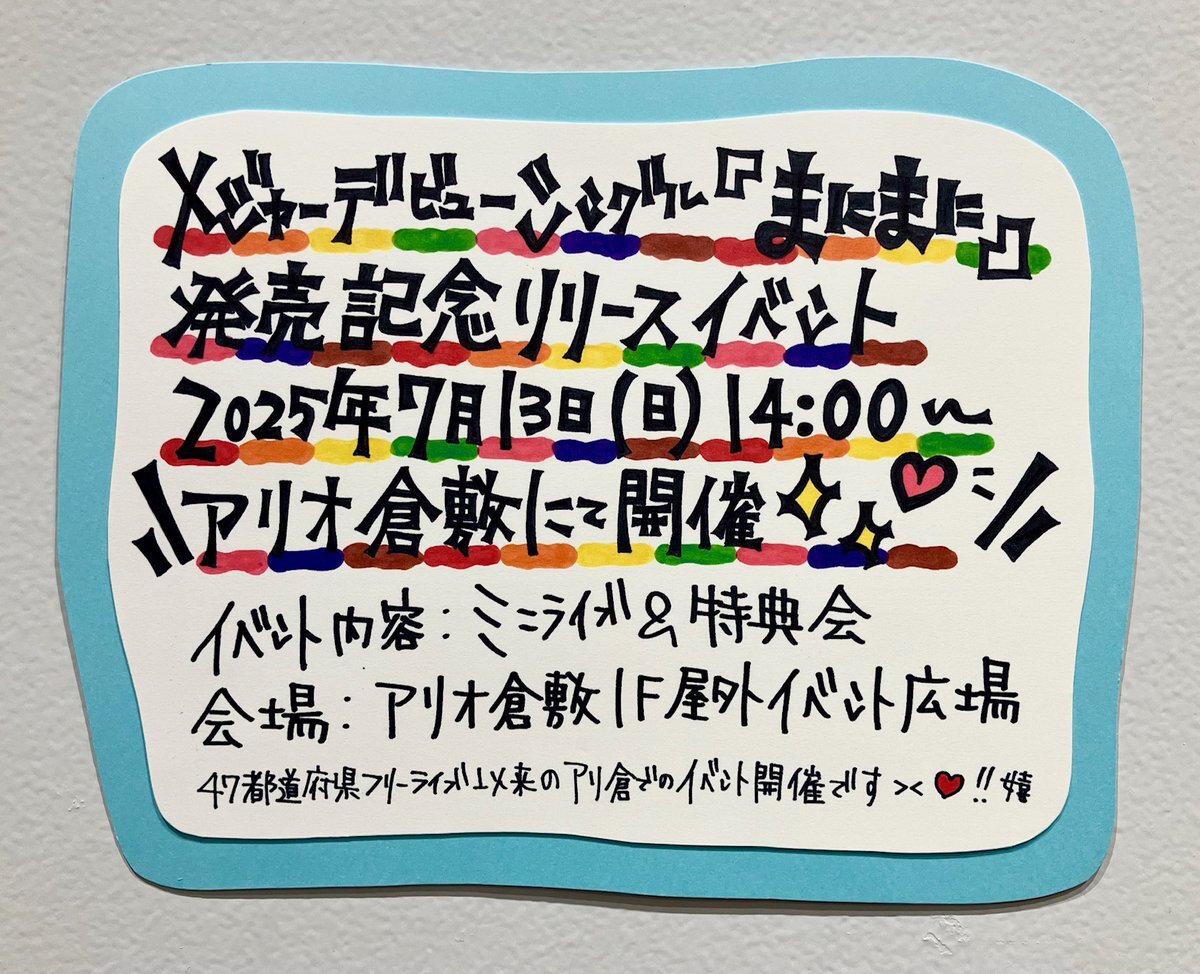 メジャーデビューシングル『まにまに』
発売記念リリースイベント
2025年7月13日(日)14:00〜
アリオ倉敷にて開催
イベント内容:ミニライブ&特典会
会場:アリオ倉敷1F屋外イベント広場
47都道府県フリーライブ以来のアリ倉でのイベント開催です><♥!!嬉